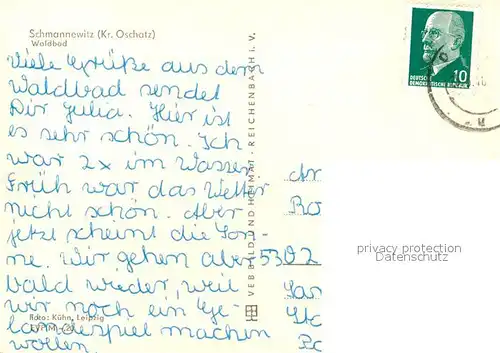 Schmannewitz (Kr. Oschatz)
Waldbad
Viele Grüße aus dem
Waldbad sendet
Dir Julia. Hier ist
es sehr schön. Ich
war 2x im Wasser
Früh war das Wetter
nicht schön. Aber
jetzt scheint die Son-
ne. Wir gehen aber
bald wieder, weil
wir noch ein Ge-
ländespiel machen
wollen.
Foto: Kühn, Leipzig
VEB BILD UND HEIMAT · REICHENBACH I. V.
10
DEUTSCHE
DEMOKRATISCHE REPUBLIK
5302
privacy protection
Datenschutz